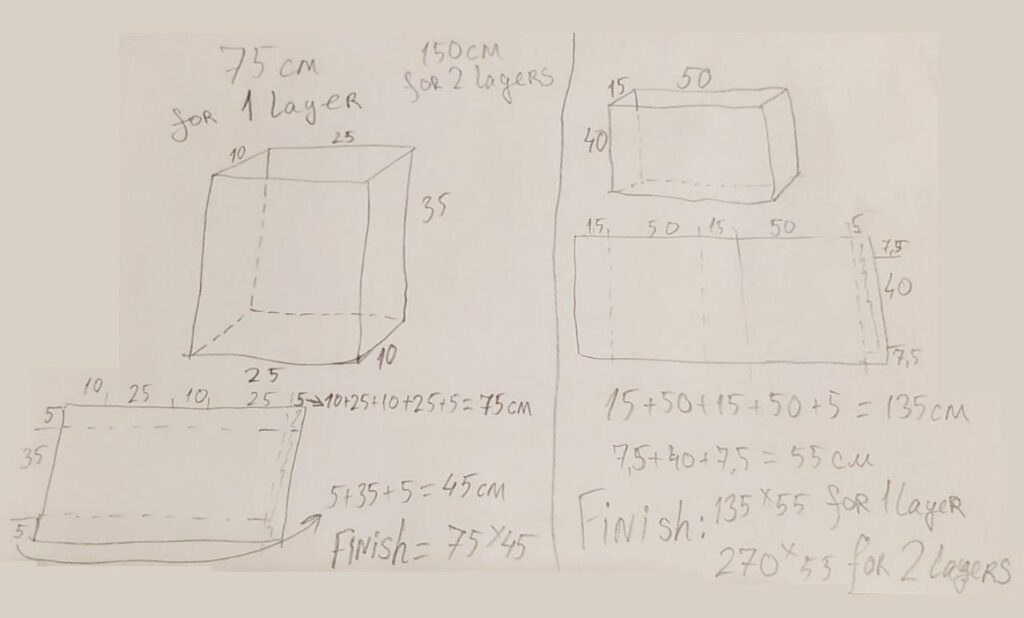 75 cm
for 1 Layer
150 cm
for 2 Lagers
10
25
35
10
25
10 25 10 25 5 → 10+25+10+25+5 = 75 cm
5
35
5
5+35+5 = 45 cm
Finish = 75×45
15 50
40
15 50 15 50 5
7,5
40
7,5
15+50+15+50+5 = 135 cm
7,5+40+7,5 = 55 cm
Finish: 135×55 for 1 Layer
270×55 for 2 Lagers